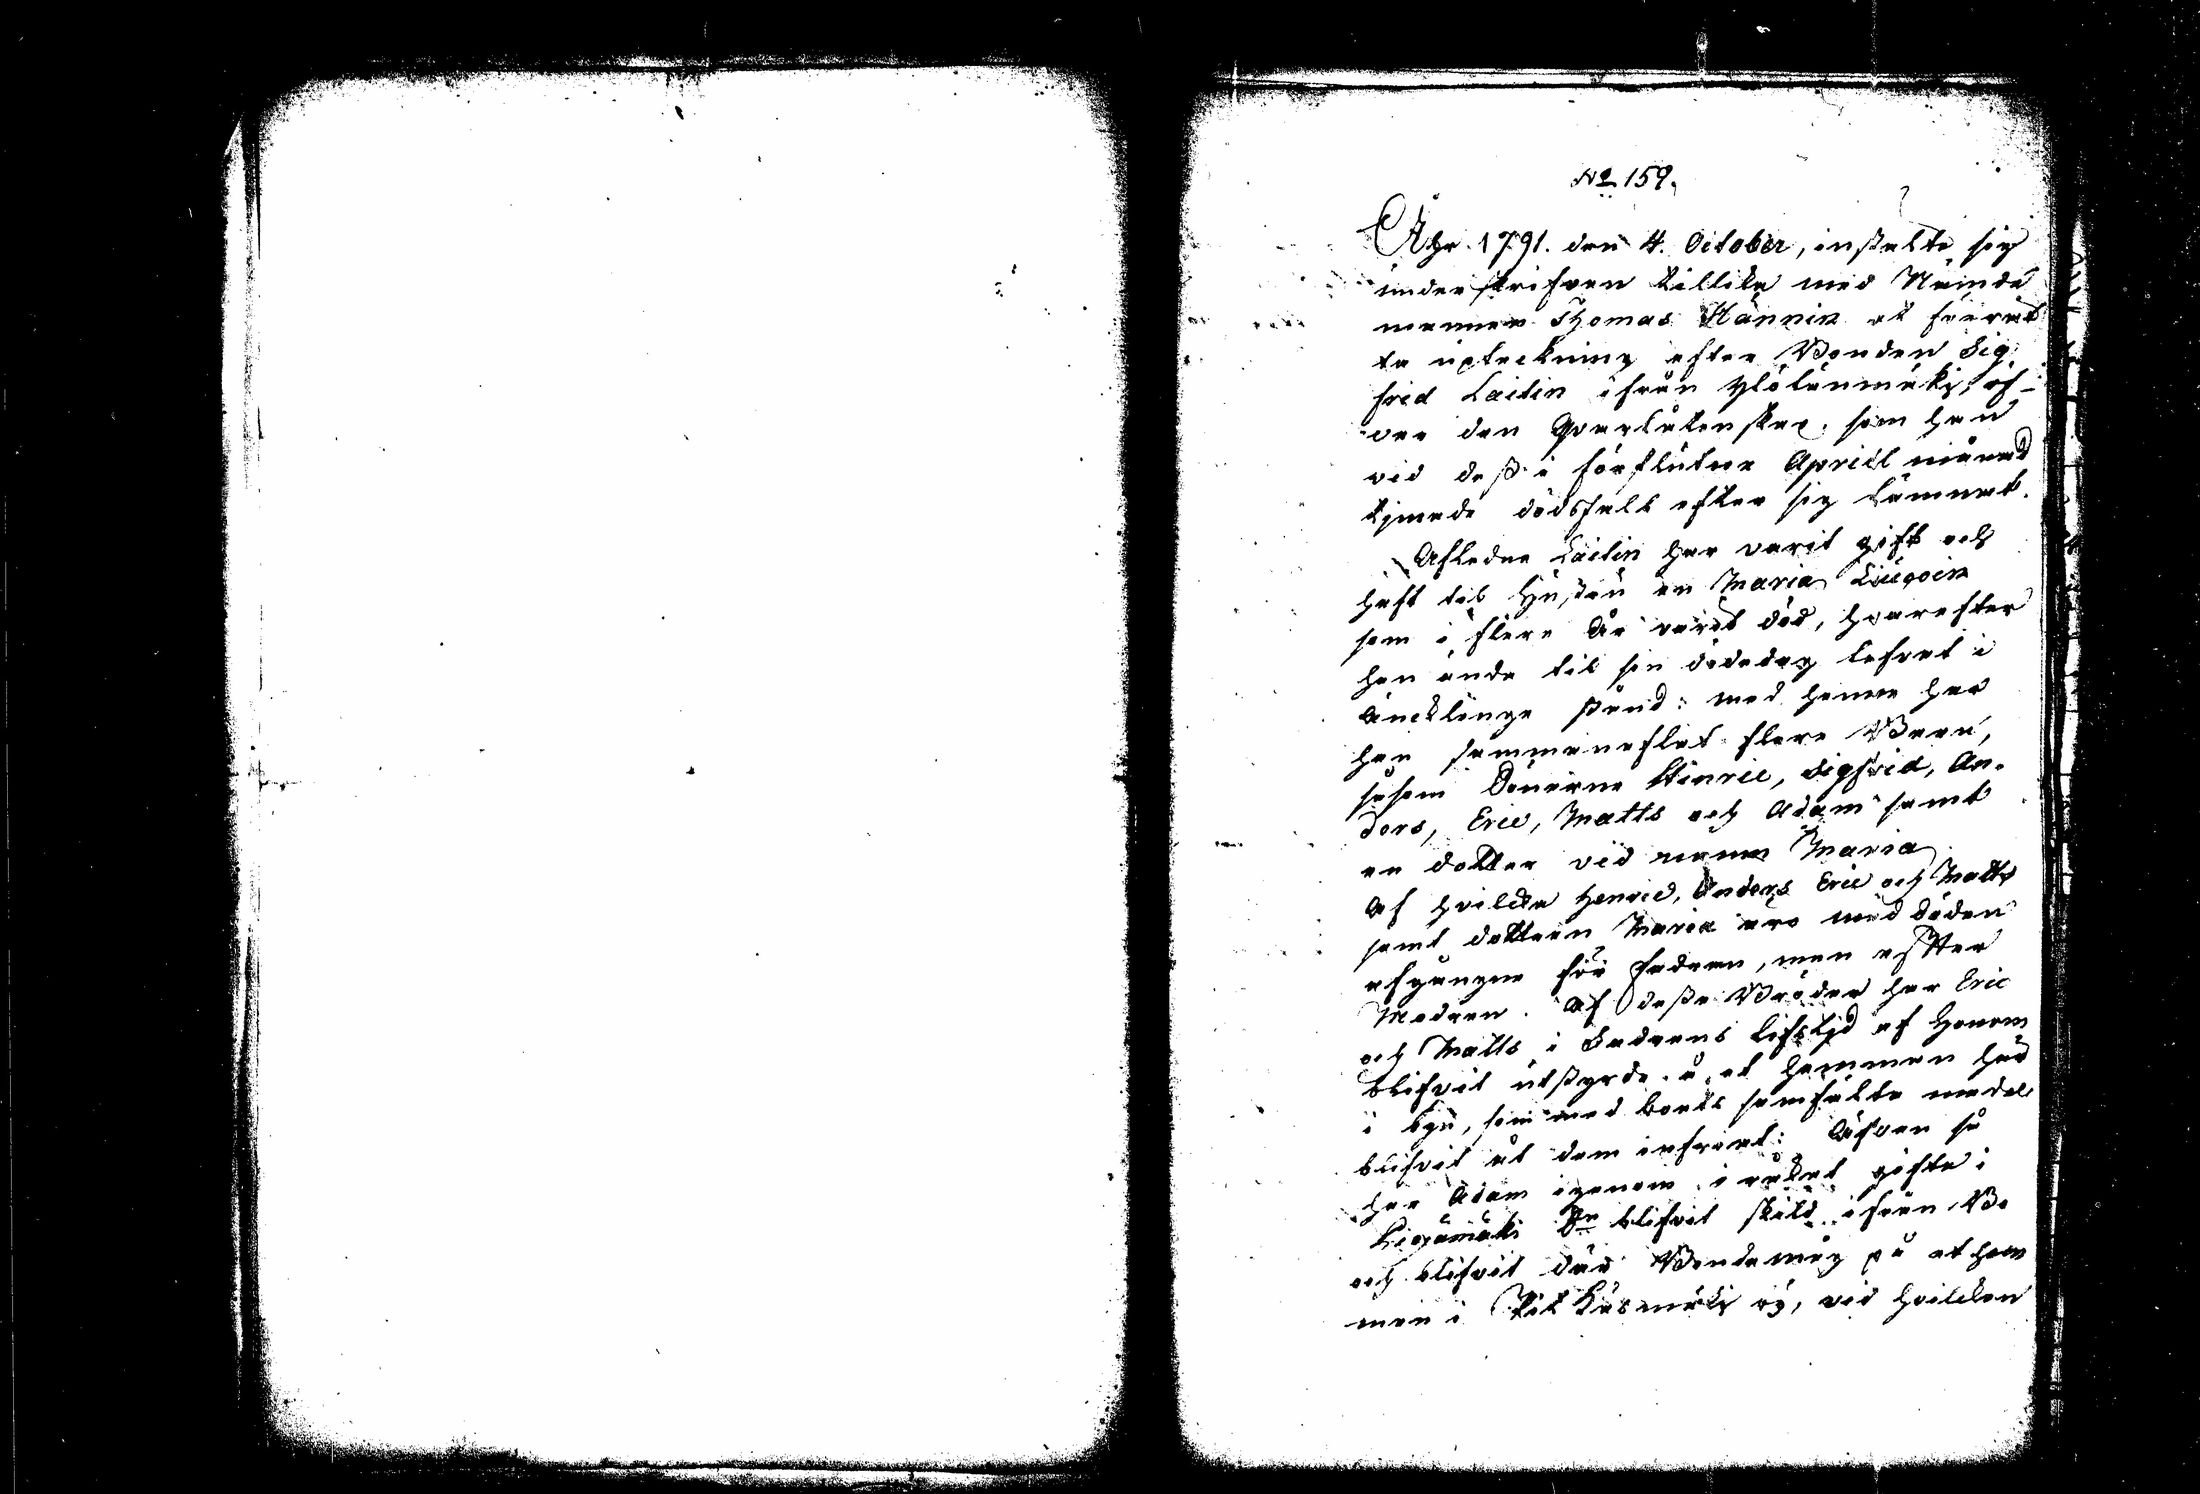 No 159.
Åhr 1791. den 4. October, instälte sig
underskrifven tillika med Nämnde
mannen Thomas Hännin at förrät
ta upteckning efter Bonden Sig
frid Laitin ifrån Ylölänmäki, öf-
ver den Qvarlåtenskap, som han
vid dess i förflutne Apriil månad
tjmade dödsfall efter sig lämnat.
Afledne Laitin har varit gift och
haft til Hustru en Maria
som i flere år varit död, hvarefter
han ända til sin dödedag lefvat i
Äncklinge stånd: med henne har
han sammanaflat flere Barn,
såsom Sönerne Hinric, Sigfrid, An-
ders, Eric, Matts och Adam samt
en dotter vid namn Maria
Af hvilcka Henric, Anders Eric och Matts
samt dottren Maria äro med döden
afgångne för Fadren, men efter
Modren. Af desse Bröder har Eric
och Matts i Fadrens lifstjd af Honom
blifvit utstyrde å et hemman här
i byn, som med boets samfälte medel
blifvit åt dem infriat: Äfven så
har Adam igenom i råkat gifte i
blifvit skild ifrån Bo
och blifvit där Bondemåg på et hem
man i by, vid hvilcken